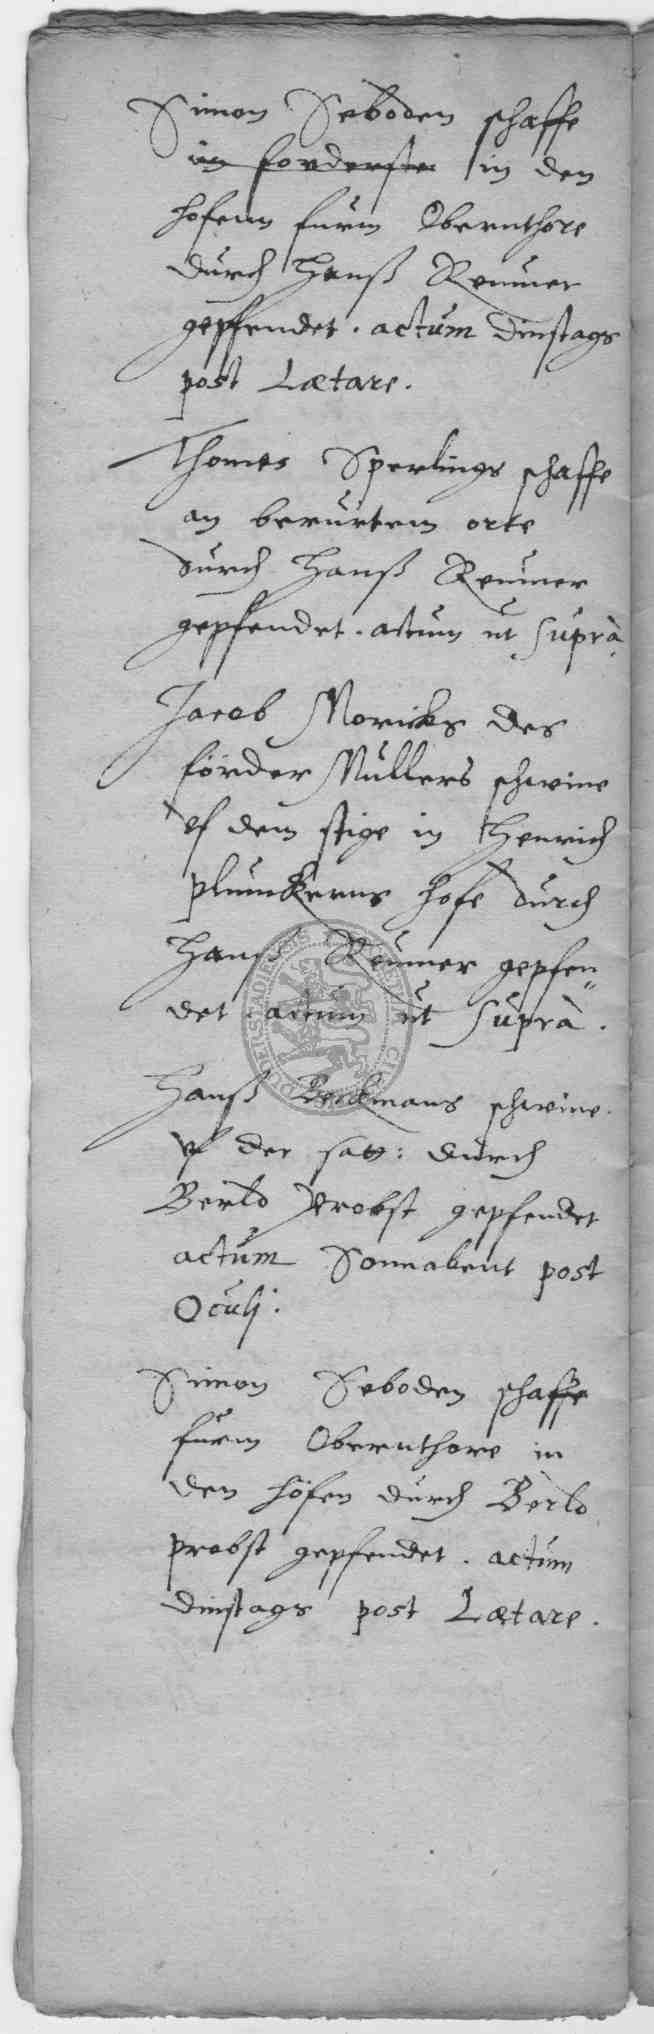 Simon Seboden schaffe
im forderste in den
hofenn furm Obernthore
durch Hanß Remmer
gepfendet . actum dinstags
post Lætare .
Thomes Sperlings schaffe
an berurtem orte
durch Hanß Remmer
gepfendet . actum ut supra
Jacob Moricks des
förder Müllers schwine
vf dem stige in Henrich
plunckerns hofe durch
Hanß Remmer gepfen„
det . actum ut supra .
Hanß Beckmans schwine
vf der satt : durch
Berld Probst gepfendet
actum Sonnabent post
Oculj .
Simon Seboden schaffe
furm Obernthore in
den höfen durch Berld
probst gepfendet . actum
dinstags post Lætare .